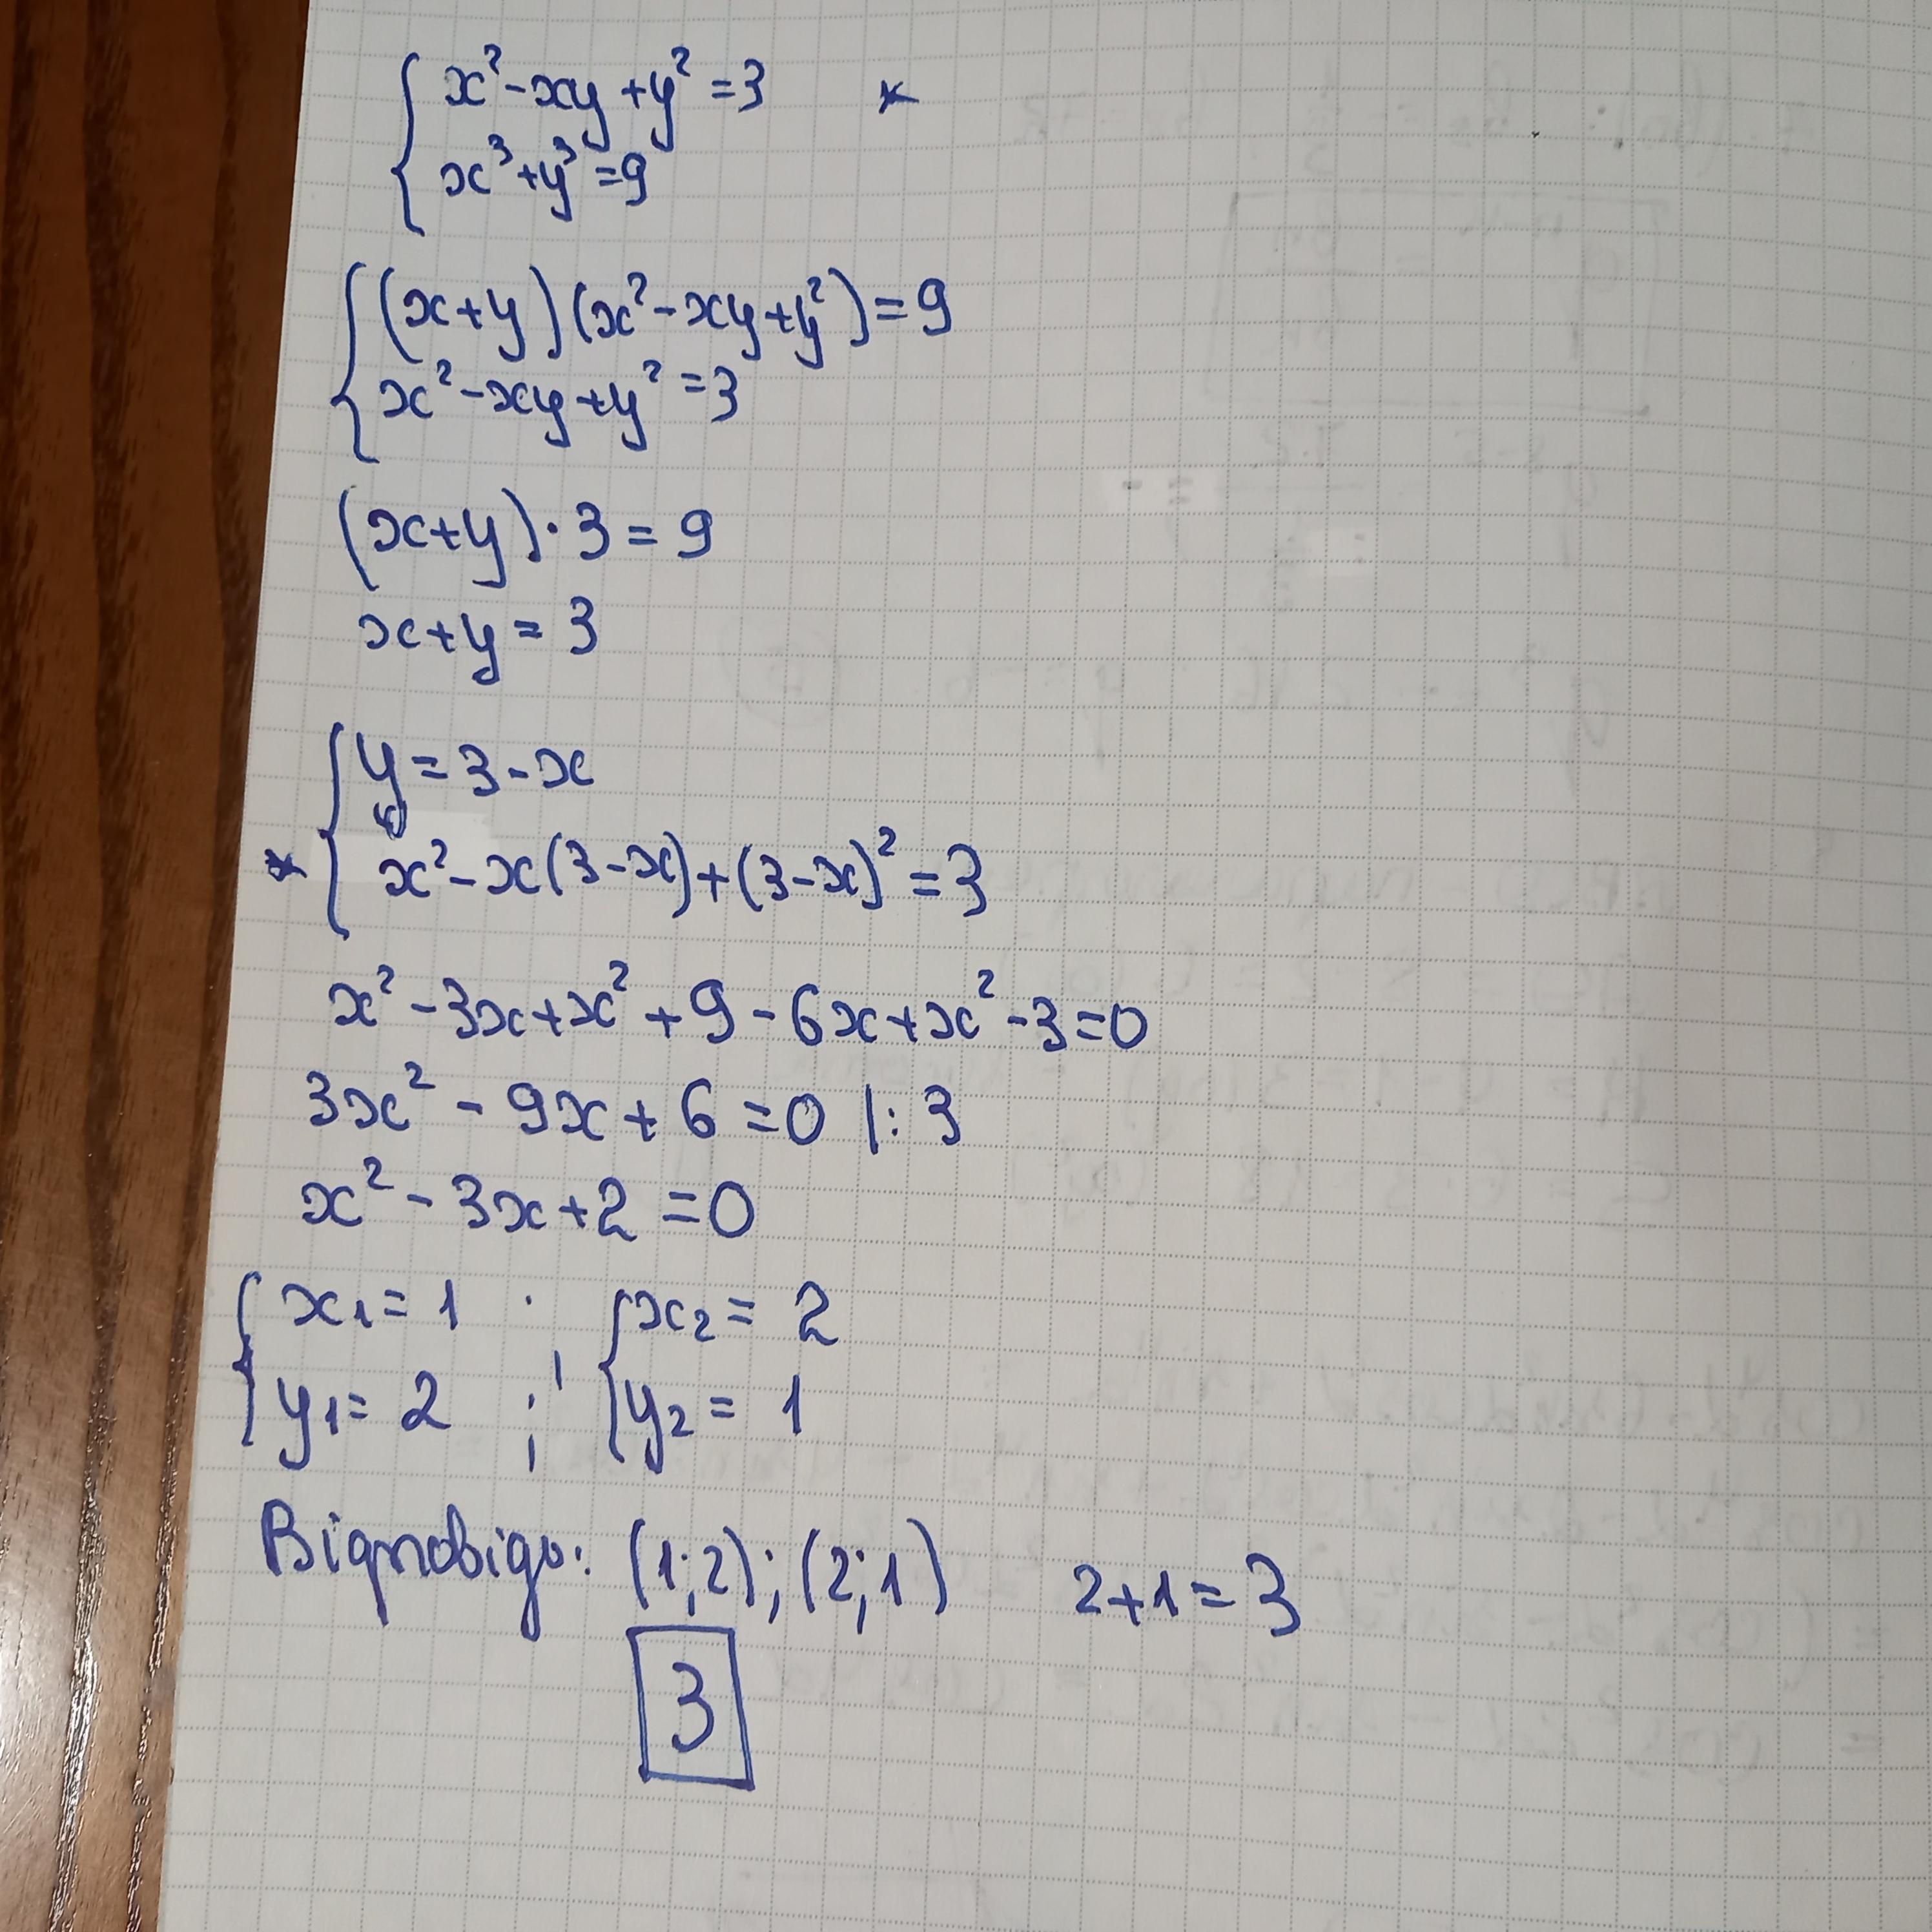 { x² - xy + y² = 3 *
x³ + y³ = 9
{ (x+y)(x² - xy + y²) = 9
x² - xy + y² = 3
(x+y) · 3 = 9
x + y = 3
{ y = 3 - x
* x² - x(3-x) + (3-x)² = 3
x² - 3x + x² + 9 - 6x + x² - 3 = 0
3x² - 9x + 6 = 0 |: 3
x² - 3x + 2 = 0
{ x₁ = 1 ; { x₂ = 2
y₁ = 2 ; y₂ = 1
Відповідь: (1;2); (2;1) 2+1=3
3